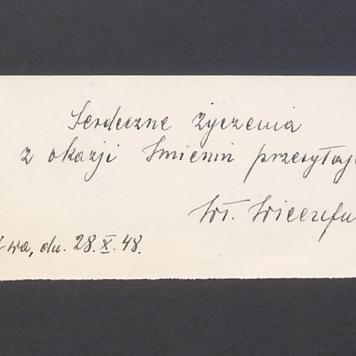 Serdeczne życzenia
z okazji Imienin przesyłają
Wł.
wa, dn. 28.X.48.